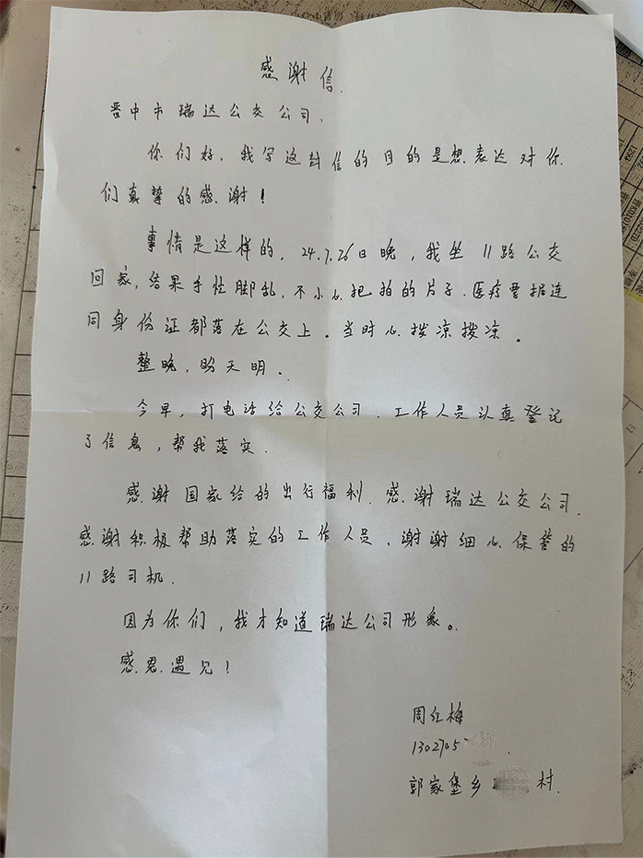 感谢信.
晋中市瑞达公交公司,
你们好,我写这封信的目的是想表达对你
们真挚的感谢!
事情是这样的,24.7.26日晚,我坐11路公交
回家,结果手忙脚乱,不小心把拍的片子.医疗票据连
同身份证都落在公交上。当时心拨凉拨凉。
整晚,盼天明.
今早,打电话给公交公司.工作人员认真登记
了信息,帮我落实.
感谢国家给的出行福利.感谢瑞达公交公司.
感谢积极帮助落实的工作人员、谢谢细心保管的
11路司机.
因为你们,我才知道瑞达公司形象。
感恩遇见!
周红梅
1302705
郭家堡乡 村.